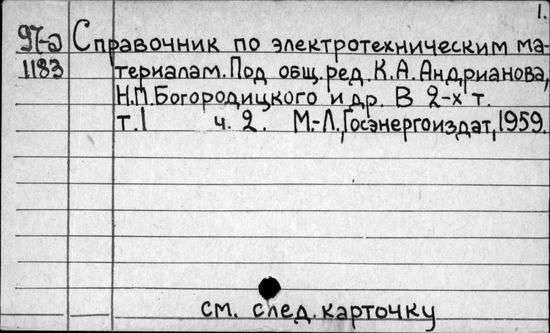 1.
97-д Справочник по электротехническим ма-
1183 териалам. Под общ. ред. К.А. Андрианова,
Н.П. Богородицкого и др. В 2-х т.
т.1 ч. 2. М.-Л., Госэнергоиздат, 1959.
см. след. карточку